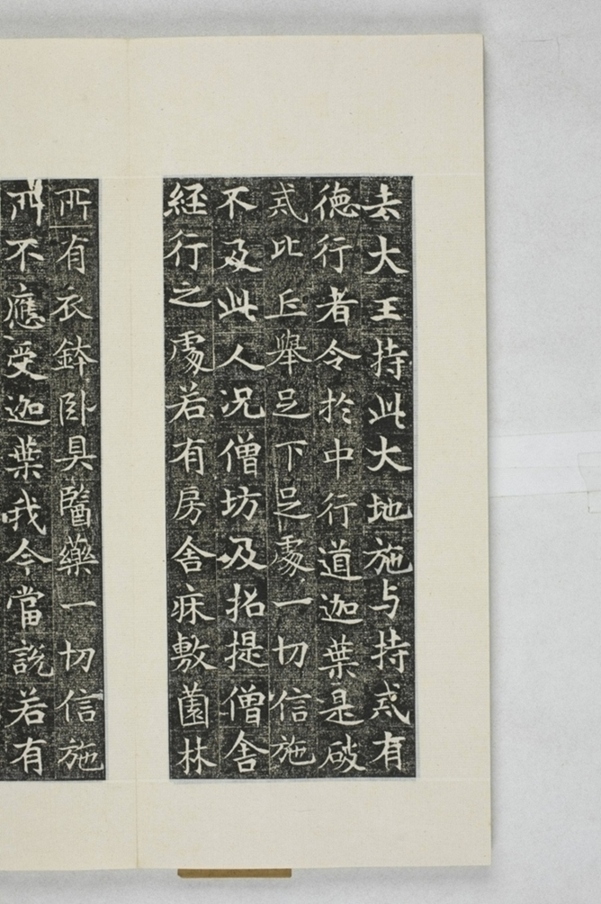 去大王持此大地施与持戒有
德行者令於中行道迦葉是破
戒比丘舉足下足處一切信施
不及此人况僧坊及招提僧舍
経行之處若有房舍床敷園林
所有衣鉢卧具醫藥一切信施
所不應受迦葉我今當説若有